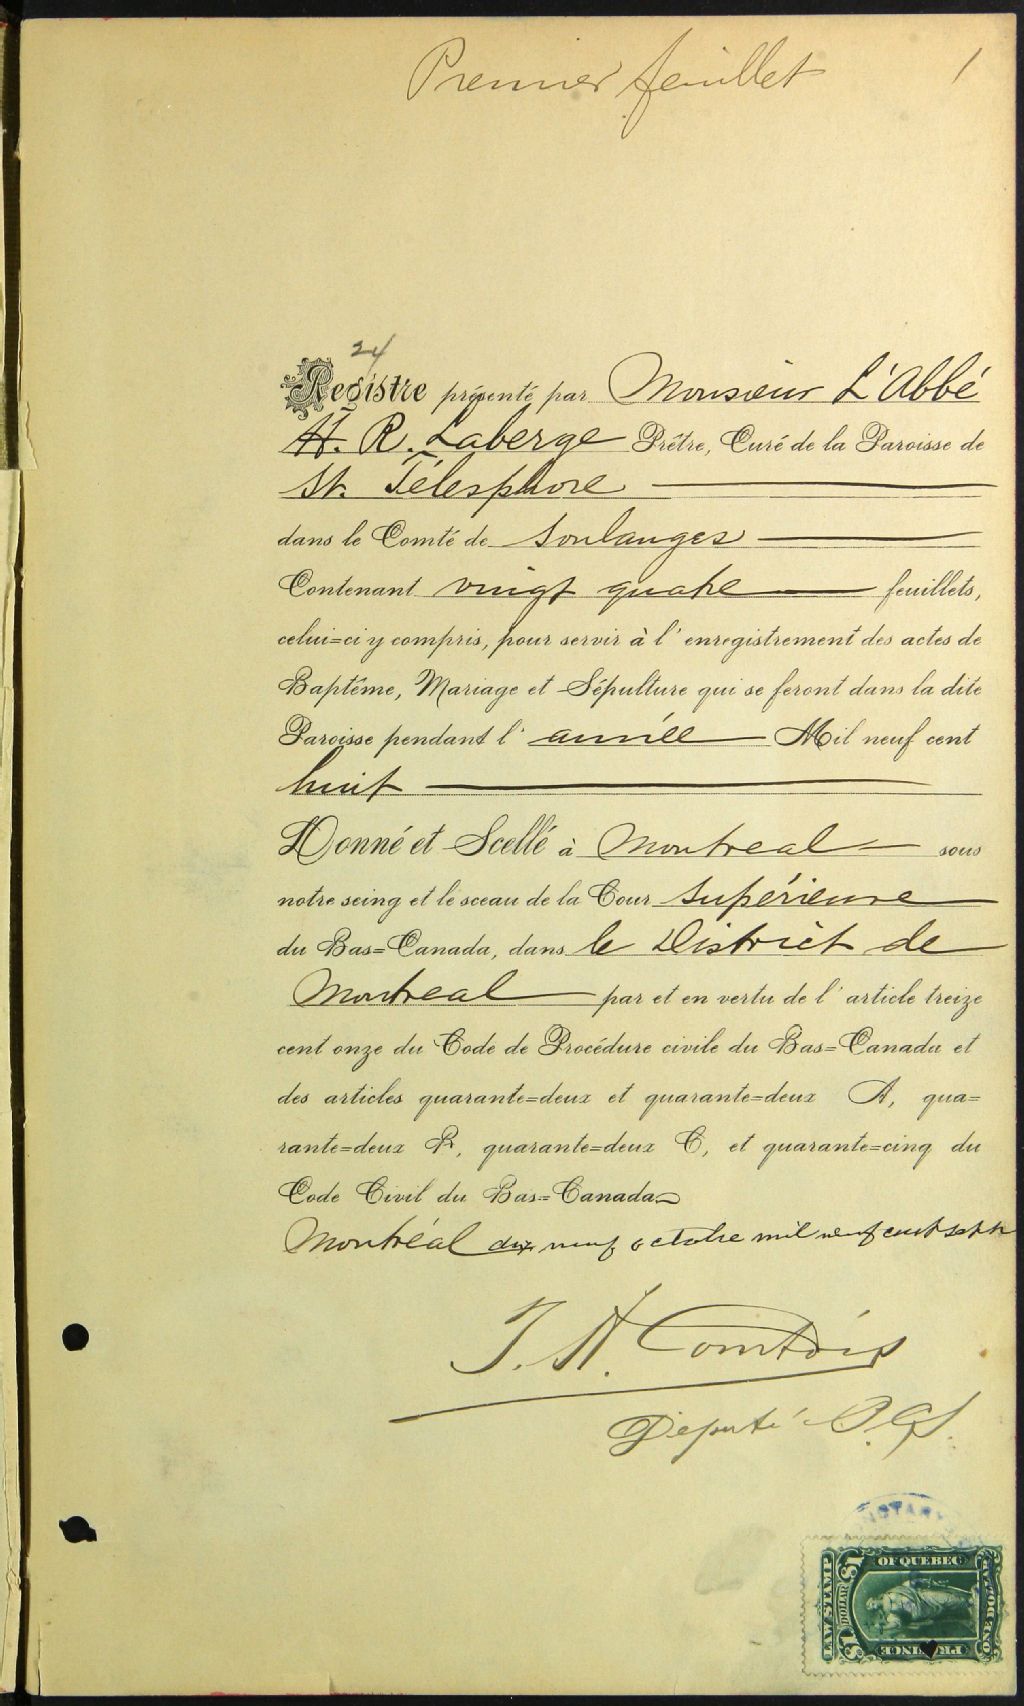 Premier feuillet
1
24
Registre présenté par Monsieur L'Abbé
H. R. Laberge Prêtre, Curé de la Paroisse de
St. Télesphore
dans le Comté de Soulanges
Contenant vingt quatre feuillets,
celui=ci y compris, pour servir à l'enregistrement des actes de
Baptême, Mariage et Sépulture qui se feront dans la dite
Paroisse pendant l'année Mil neuf cent
huit
Donné et Scellé à Montreal sous
notre seing et le sceau de la Cour supérieure
du Bas=Canada, dans le District de
Montreal par et en vertu de l'article treize
cent onze du Code de Procédure civile du Bas=Canada et
des articles quarante=deux et quarante=deux A, qua=
rante=deux B, quarante=deux C, et quarante=cinq du
Code Civil du Bas=Canada
Montréal dix neuf octobre mil neuf cent sept
J. H. Comtois
Député P.C.S.
LAW STAMP
$1 DOLLAR $1
OF QUEBEC
PROVINCE
ONE DOLLAR